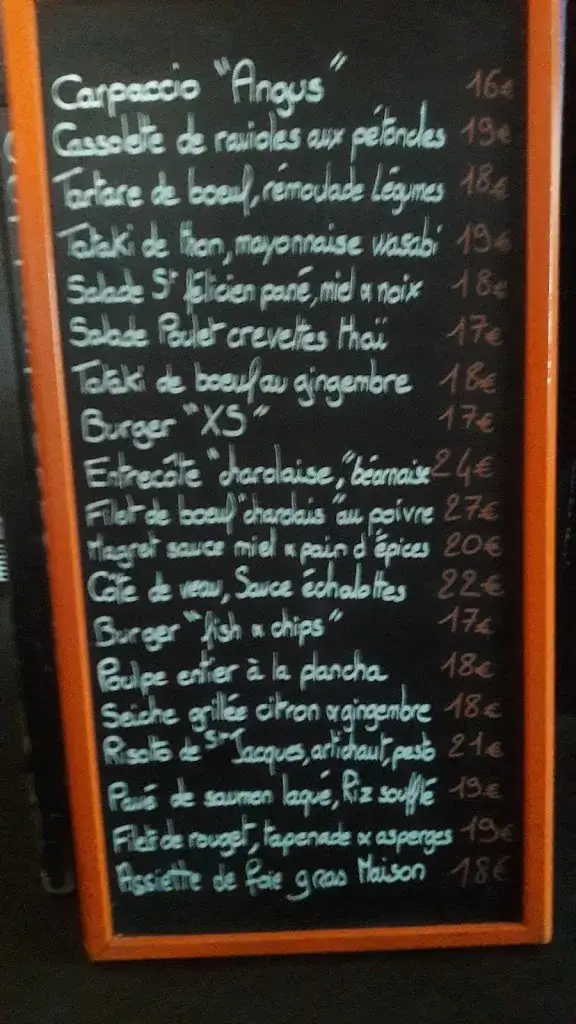 Carpaccio "Angus" 16€
Cassolette de ravioles aux pétoncles 19€
Tartare de boeuf, rémoulade Légumes 18€
Tataki de thon, mayonnaise wasabi 19€
Salade St félicien pané, miel & noix 18€
Salade Poulet crevettes thaï 17€
Tataki de boeuf au gingembre 18€
Burger "XS" 17€
Entrecôte "charolaise," béarnaise 24€
Filet de boeuf "charolais" au poivre 27€
Magret sauce miel & pain d'épices 20€
Côte de veau, Sauce échalottes 22€
Burger "fish & chips" 17€
Poulpe entier à la plancha 18€
Seiche grillée citron & gingembre 18€
Risotto de St Jacques, artichaut, pesto 21€
Pavé de saumon laqué, Riz soufflé 19€
Filets de rouget, tapenade & asperges 19€
Assiette de foie gras Maison 18€